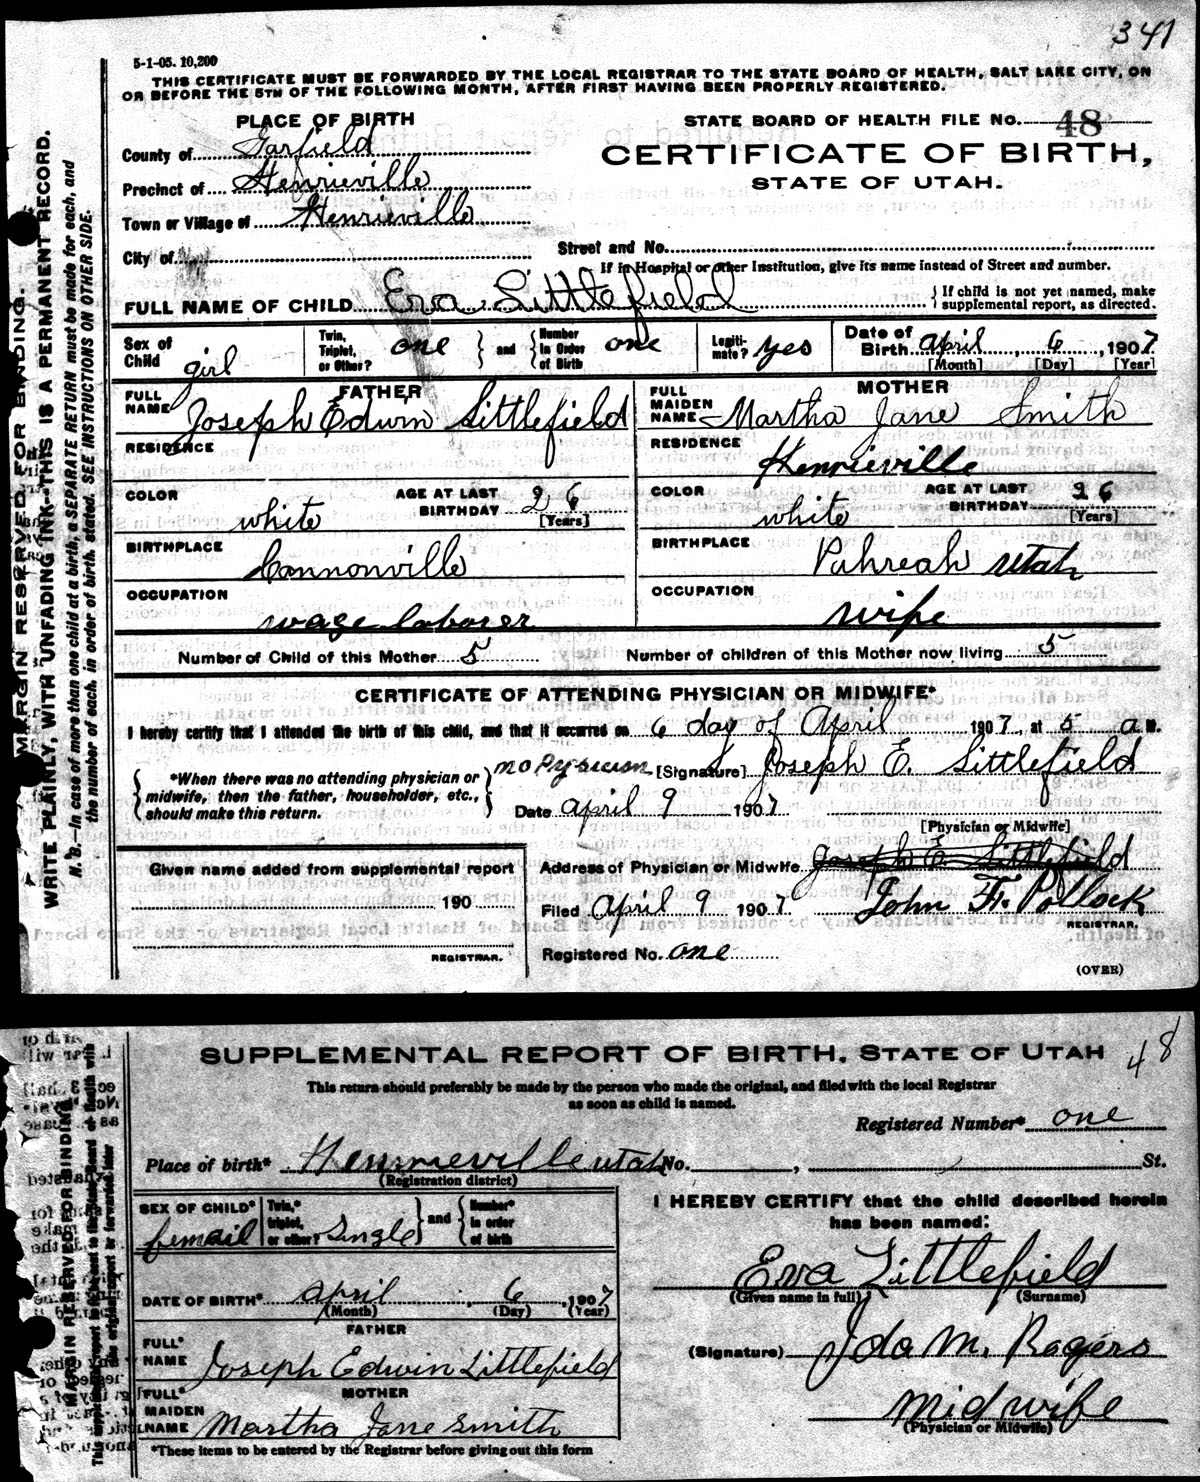 341
5-1-05. 10,200
THIS CERTIFICATE MUST BE FORWARDED BY THE LOCAL REGISTRAR TO THE STATE BOARD OF HEALTH, SALT LAKE CITY, ON
OR BEFORE THE 5TH OF THE FOLLOWING MONTH, AFTER FIRST HAVING BEEN PROPERLY REGISTERED.
MARGIN RESERVED FOR BINDING.
WRITE PLAINLY, WITH UNFADING INK--THIS IS A PERMANENT RECORD.
N. B.--In case of more than one child at a birth, a SEPARATE RETURN must be made for each, and
the number of each, in order of birth, stated. SEE INSTRUCTIONS ON OTHER SIDE.
PLACE OF BIRTH
County of Garfield
Precinct of Henrieville
Town or Village of Henrieville
City of
STATE BOARD OF HEALTH FILE NO. 48
CERTIFICATE OF BIRTH,
STATE OF UTAH.
Street and No.
If in Hospital or other Institution, give its name instead of Street and number.
FULL NAME OF CHILD Eva Littlefield
If child is not yet named, make
supplemental report, as directed.
Sex of Child girl
Twin, Triplet, or Other? one
and
Number in Order of Birth one
Legitimate? yes
Date of Birth April 6, 1907
[Month] [Day] [Year]
FATHER
FULL NAME Joseph Edwin Littlefield
RESIDENCE
COLOR white
AGE AT LAST BIRTHDAY 26
[Years]
BIRTHPLACE Cannonville
OCCUPATION wage laborer
MOTHER
FULL MAIDEN NAME Martha Jane Smith
RESIDENCE Henrieville
COLOR white
AGE AT LAST BIRTHDAY 26
[Years]
BIRTHPLACE Pahreah Utah
OCCUPATION wife
Number of Child of this Mother 5
Number of children of this Mother now living 5
CERTIFICATE OF ATTENDING PHYSICIAN OR MIDWIFE*
I hereby certify that I attended the birth of this child, and that it occurred on 6 day of April 1907, at 5 a M.
*When there was no attending physician or
midwife, then the father, householder, etc.,
should make this return.
no Pysicion [Signature] Joseph E. Littlefield
Date April 9 1907
[Physician or Midwife]
Address of Physician or Midwife Joseph E. Littlefield
Filed April 9 1907 John F. Pollock
REGISTRAR.
Registered No. one
(OVER)
Given name added from supplemental report
190
REGISTRAR.
SUPPLEMENTAL REPORT OF BIRTH, STATE OF UTAH
48
This return should preferably be made by the person who made the original, and filed with the local Registrar
as soon as child is named.
Registered Number* one
Place of birth* Henrieville utah No. , St.
(Registration district)
MARGIN RESERVED FOR BINDING
SEX OF CHILD* femail
Twin,* triplet, or other? Single
and
Number* in order of birth
DATE OF BIRTH* April 6, 1907
(Month) (Day) (Year)
FATHER
FULL* NAME Joseph Edwin Littlefield
MOTHER
FULL* MAIDEN NAME Martha Jane Smith
*These items to be entered by the Registrar before giving out this form
I HEREBY CERTIFY that the child described herein
has been named:
Eva Littlefield
(Given name in full) (Surname)
(Signature) Ida M. Rogers
midwife
(Physician or Midwife)